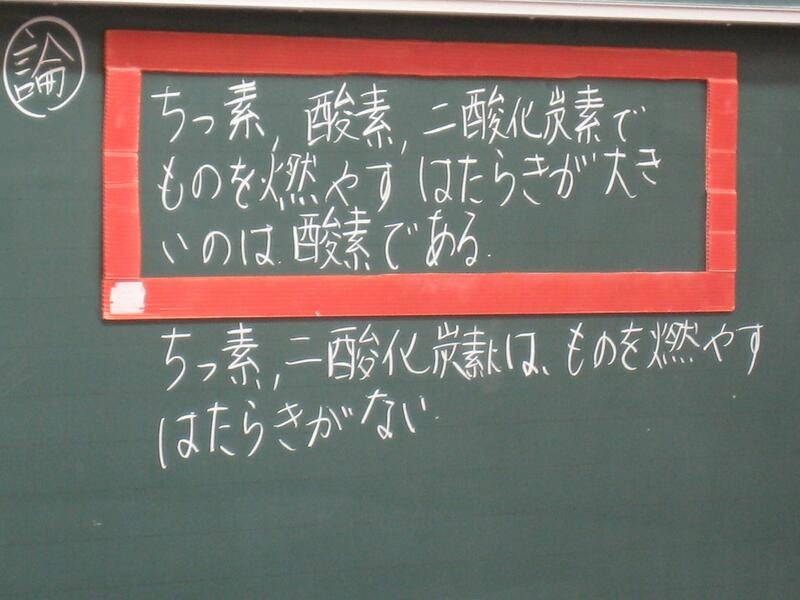 論
ちっ素,酸素,二酸化炭素で
ものを燃やすはたらきが大き
いのは酸素である.
ちっ素,二酸化炭素は、ものを燃やす
はたらきがない.